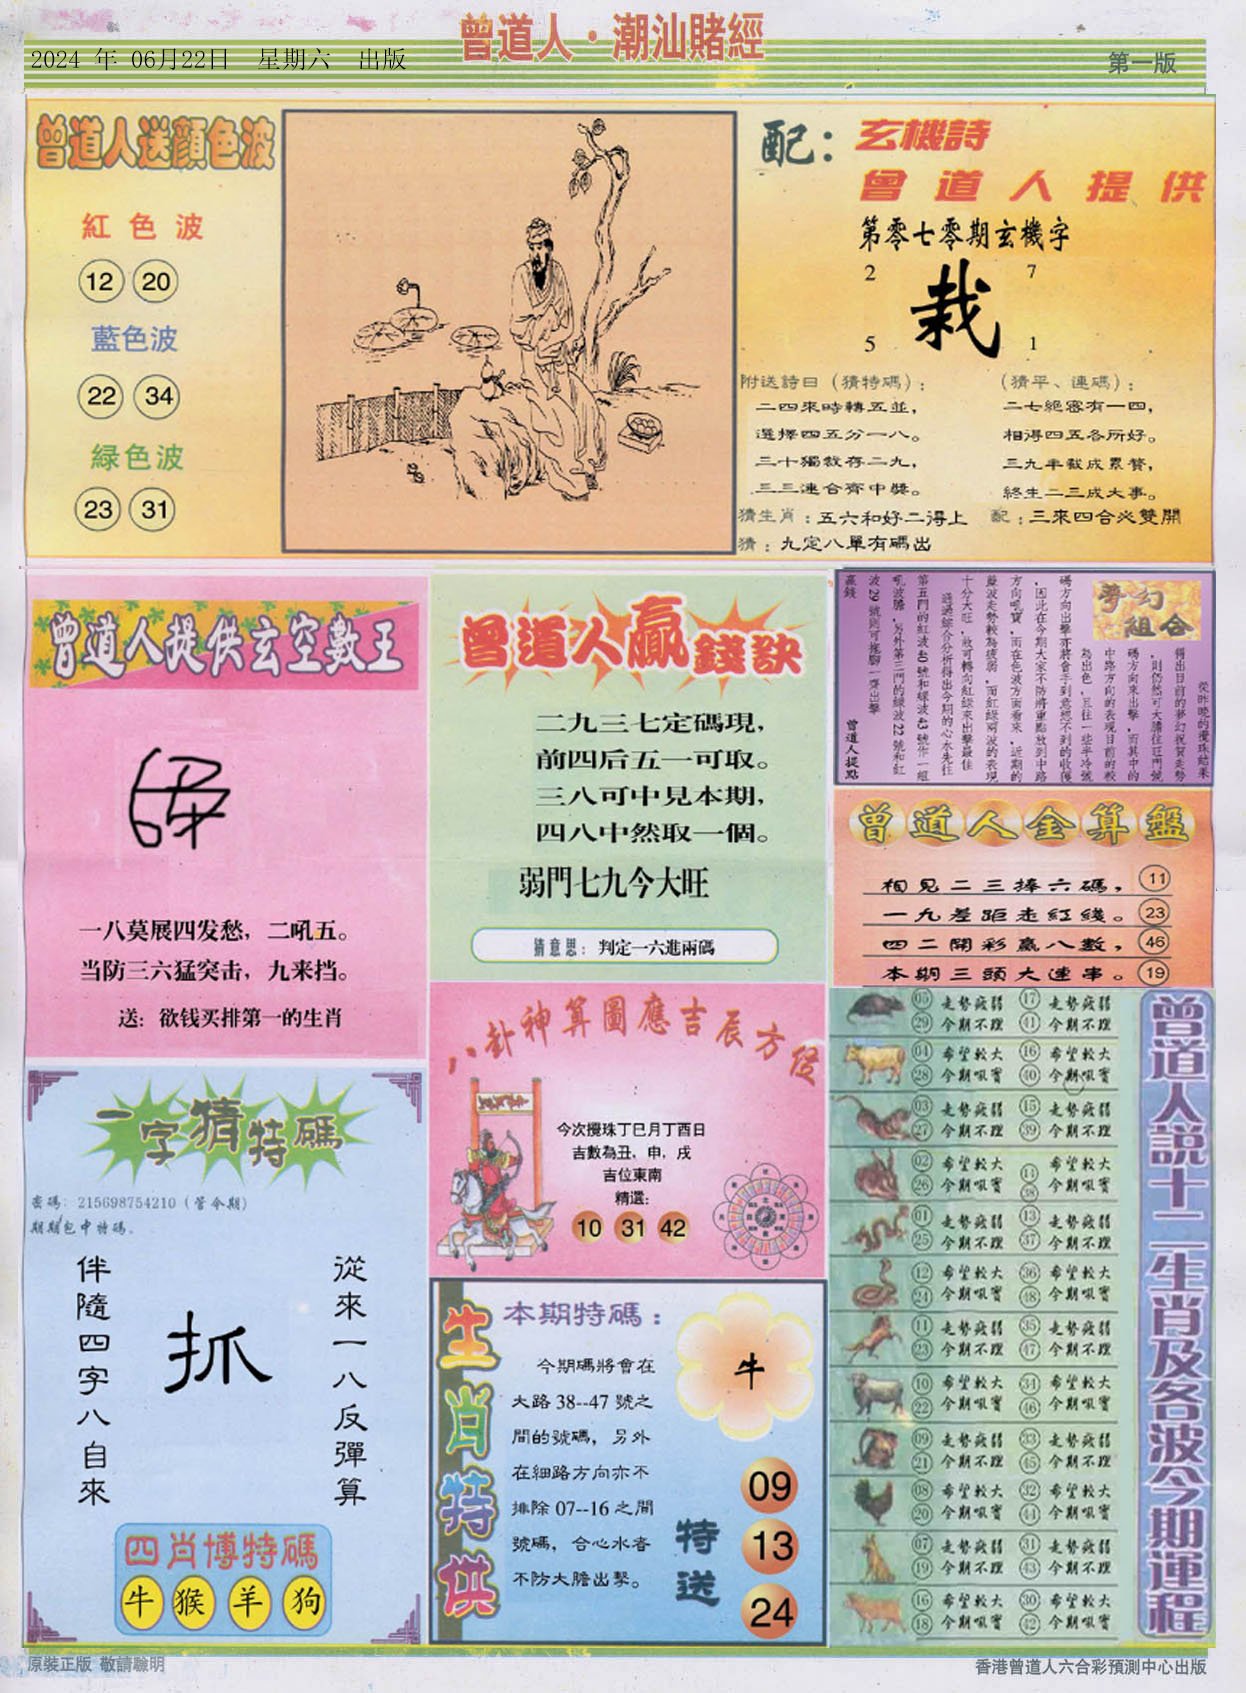 2024 年 06月22日 星期六 出版
曾道人·潮汕賭經
第一版
曾道人送顔色波
紅色波
12 20
藍色波
22 34
緑色波
23 31
配：玄機詩
曾道人提供
第零七零期玄機字
2 7
栽
5 1
附送詩曰（猜特碼）：
二四來時轉五並，
選擇四五分一八。
三十獨裁存二九，
三三連合齊中獎。
（猜平、連碼）：
二七絕密有一四，
相得四五各所好。
三九半載成累贅，
終生二三成大事。
猜生肖：五六和好二得上
配：三來四合必雙開
猜：九定八單有碼出
曾道人提供玄空數王
一八莫展四发愁，二吼五。
当防三六猛突击，九来挡。
送：欲钱买排第一的生肖
曾道人贏錢訣
二九三七定碼現，
前四后五一可取。
三八可中見本期，
四八中然取一個。
弱門七九今大旺
猜意思：判定一六進兩碼
夢幻組合
從昨晚的攪珠結果
得出目前的夢幻祝賀走勢
，則仍然可大膽往旺門號
碼方向來出擊，而其中的
中路方向的表現目前的較
為出色，且往一些半冷號
碼方向出擊亦將會手到意想不到的收獲
，因此在今期大家不防將重點放到中路
方向吼寶，而在色波方面看來，近期的
藍波走勢較為疲弱，而紅綠兩波的表現
十分大旺，故可轉向紅綠來出擊最佳
通過綜合分析得出今期的心水先往
第五門的紅波40號和綠波43號作一組
吼波膽，另外第三門的綠波22號和紅
波29號則可拖腳一齊出擊
贏錢
曾道人提點
曾道人金算盤
相見二三捧六碼，11
一九差距走紅綫。23
四二開彩贏八數，46
本期三頭大連事。19
一字猜特碼
密碼：215698754210（管令期）
期期包中特碼。
從來一八反彈算
抓
伴隨四字八自來
四肖博特碼
牛 猴 羊 狗
八卦神算圖應吉辰方位
今次攪珠丁巳月丁酉日
吉數為丑，申，戌
吉位東南
精選：
10 31 42
生肖特供
本期特碼：
今期碼將會在
大路 38--47 號之
間的號碼，另外
在細路方向亦不
排除 07--16 之間
號碼，合心水者
不防大膽出擊。
牛
特送
09
13
24
曾道人説十二生肖及各波今期運程
05 走勢疲弱 17 走勢疲弱
29 今期不理 41 今期不理
04 希望較大 16 希望較大
28 今期吼寶 40 今期吼寶
03 走勢疲弱 15 走勢疲弱
27 今期不理 39 今期不理
02 希望較大 14 希望較大
26 今期吼寶 38 今期吼寶
01 走勢疲弱 13 走勢疲弱
25 今期不理 37 今期不理
12 希望較大 36 希望較大
24 今期吼寶 48 今期吼寶
11 走勢疲弱 35 走勢疲弱
23 今期不理 47 今期不理
10 希望較大 34 希望較大
22 今期吼寶 46 今期吼寶
09 走勢疲弱 33 走勢疲弱
21 今期不理 45 今期不理
08 希望較大 32 希望較大
20 今期吼寶 44 今期吼寶
07 走勢疲弱 31 走勢疲弱
19 今期不理 43 今期不理
16 希望較大 30 希望較大
18 今期吼寶 42 今期吼寶
原裝正版 敬請聰明
香港曾道人六合彩預測中心出版